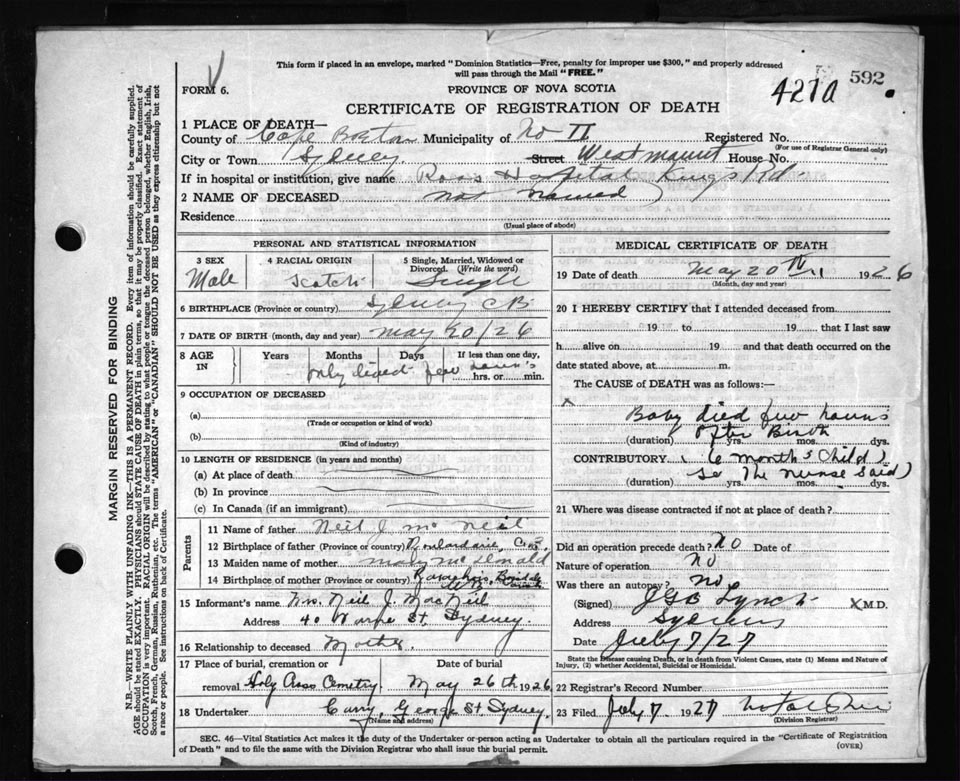 This form if placed in an envelope, marked "Dominion Statistics—Free, penalty for improper use $300," and properly addressed
will pass through the Mail "FREE."
592
427a
FORM 6.
PROVINCE OF NOVA SCOTIA
CERTIFICATE OF REGISTRATION OF DEATH
1 PLACE OF DEATH—
County of Cape Breton Municipality of No II Registered No.
(For use of Registrar General only)
City or Town Sydney Street Westmount House No.
If in hospital or institution, give name Ross Hospital Kings Rd.
2 NAME OF DECEASED not named
Residence
(Usual place of abode)
PERSONAL AND STATISTICAL INFORMATION
3 SEX
Male
4 RACIAL ORIGIN
Scotch
5 Single, Married, Widowed or
Divorced. (Write the word)
Single
6 BIRTHPLACE (Province or country) Sydney CB
7 DATE OF BIRTH (month, day and year) May 20/26
8 AGE
IN
Years
Months
Days
If less than one day,
hrs. or min.
only lived few hours
9 OCCUPATION OF DECEASED
(a)
(Trade or occupation or kind of work)
(b)
(Kind of industry)
10 LENGTH OF RESIDENCE (in years and months)
(a) At place of death
(b) In province
(c) In Canada (if an immigrant)
Parents
11 Name of father Neil J. Mc Neil
12 Birthplace of father (Province or country) C.B.
13 Maiden name of mother Mary McDonald
14 Birthplace of mother (Province or country)
15 Informant's name Mrs. Neil J. MacNeil
Address 40 St. Sydney.
16 Relationship to deceased Mother.
17 Place of burial, cremation or
removal Holy Cross Cemetry.
Date of burial
May 26th 1926
18 Undertaker Curry, George St. Sydney.
(Name and address)
MEDICAL CERTIFICATE OF DEATH
19 Date of death May 20th 1926
(Month, day and year)
20 I HEREBY CERTIFY that I attended deceased from
19 to 19 that I last saw
h alive on 19 and that death occurred on the
date stated above, at m.
The CAUSE OF DEATH was as follows:—
Baby died few hours
after Birth
(duration) yrs. mos. dys.
CONTRIBUTORY (6 months child)
so the nurse said)
(duration) yrs. mos. dys.
21 Where was disease contracted if not at place of death?
Did an operation precede death? No Date of
Nature of operation No
Was there an autopsy? No
(Signed) Lynch M.D.
Address Sydney
Date July 7/27
State the Disease causing Death, or in death from Violent Causes, state (1) Means and Nature of
Injury, (2) whether Accidental, Suicidal or Homicidal.
22 Registrar's Record Number
23 Filed July 7 1927
(Division Registrar)
SEC. 46—Vital Statistics Act makes it the duty of the Undertaker or person acting as Undertaker to obtain all the particulars required in the "Certificate of Registration
of Death" and to file the same with the Division Registrar who shall issue the burial permit.
(OVER)
MARGIN RESERVED FOR BINDING
N.B.—WRITE PLAINLY WITH UNFADING INK—THIS IS A PERMANENT RECORD. Every item of information should be carefully supplied.
AGE should be stated EXACTLY. PHYSICIANS should STATE CAUSE OF DEATH in plain terms, so that it may be properly classified. Exact statement of
OCCUPATION is very important. RACIAL ORIGIN will be described by stating to what people or tongue the deceased person belonged, whether English, Irish,
Scotch, French, German, Russian, Ruthenian, etc. The terms "AMERICAN" or "CANADIAN" SHOULD NOT BE USED as they express citizenship but not
a race or people. See instructions on back of Certificate.